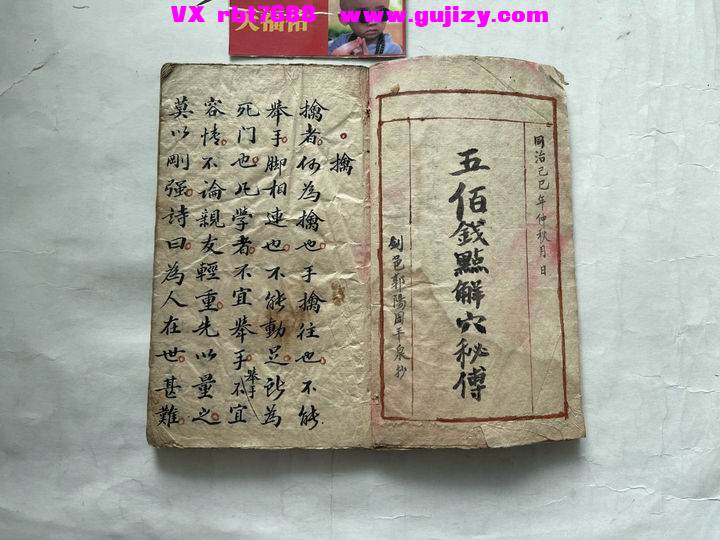 VX rbt7688 www.gujizy.com
大福酒
同治己巳年仲秋月日
五佰錢點解穴秘傳
剑邑郭陽周平泉抄
擒
擒者何為擒也手擒往也不能
舉手脚相連也不能動足訣為
死门也凡學者不宜舉手不宜
舉手
容情不論親友輕重先以量之
莫以剛强詩曰為人在世甚難